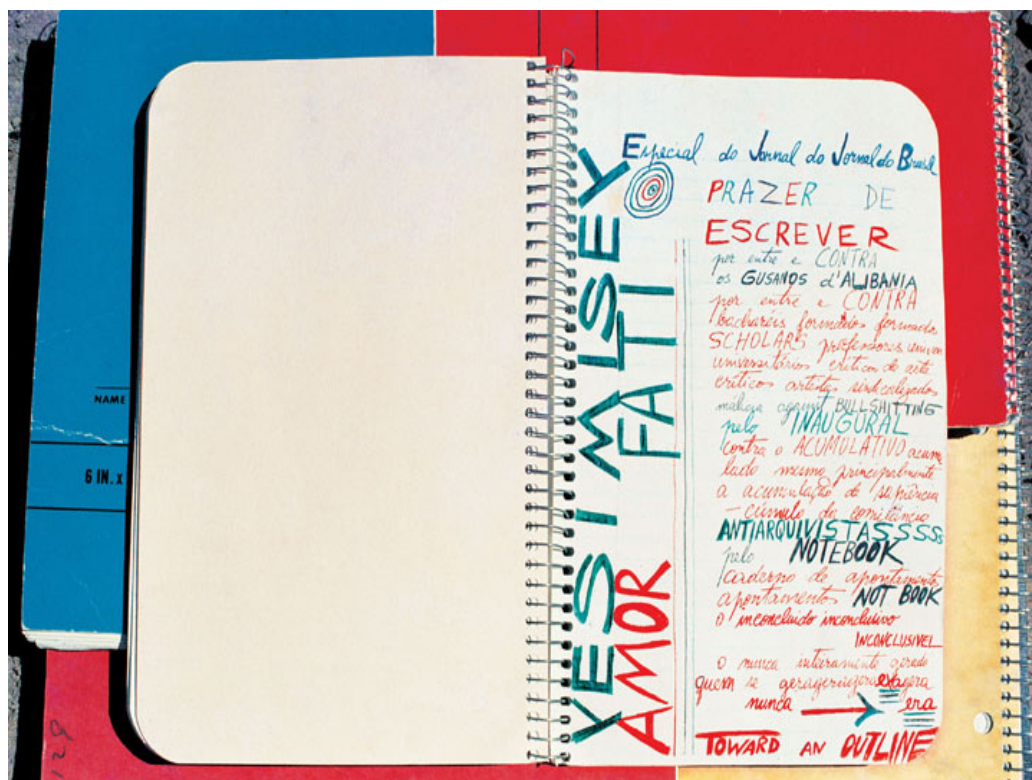 NAME
6 IN. x
YES I M ISEY
AMOR FATI
Especial do Jornal do Jornal do Brasil
PRAZER DE
ESCREVER
por entre e CONTRA
os GUSANOS d'ALIBANIA
por entre e CONTRA
bacharéis formados formados
SCHOLARS professores univer
universitários críticos de arte
críticos artistas sindicalizados
against BULLSHITTING
pelo INAUGURAL
contra o ACUMULATIVO acumu
lado mesmo principalmente
a acumulação de sapiência
– cúmulo da
ANTIARQUIVISTASSSSS
pelo NOTEBOOK
caderno de apontamento
apontamentos NOT BOOK
o inconcluido inconclusivo
INCONCLUSIVEL
o nunca inteiramente gerado
quem se
nunca → era
TOWARD AN OUTLINE